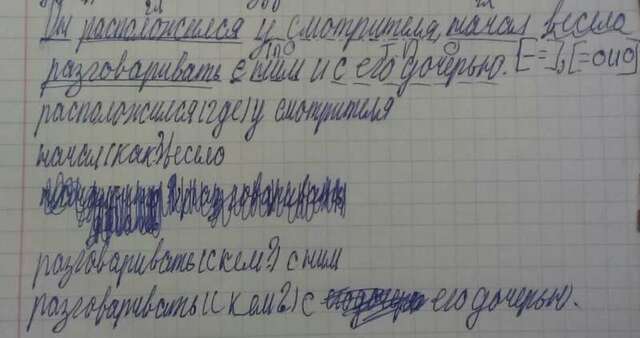 Он расположился у смотрителя, начал весело
разговаривать с ним и с его дочерью. [– =], [= о и о]
расположился (где) у смотрителя
начал (как?) весело
разговаривать (с кем?) с ним
разговаривать (с кем?) с его дочерью.